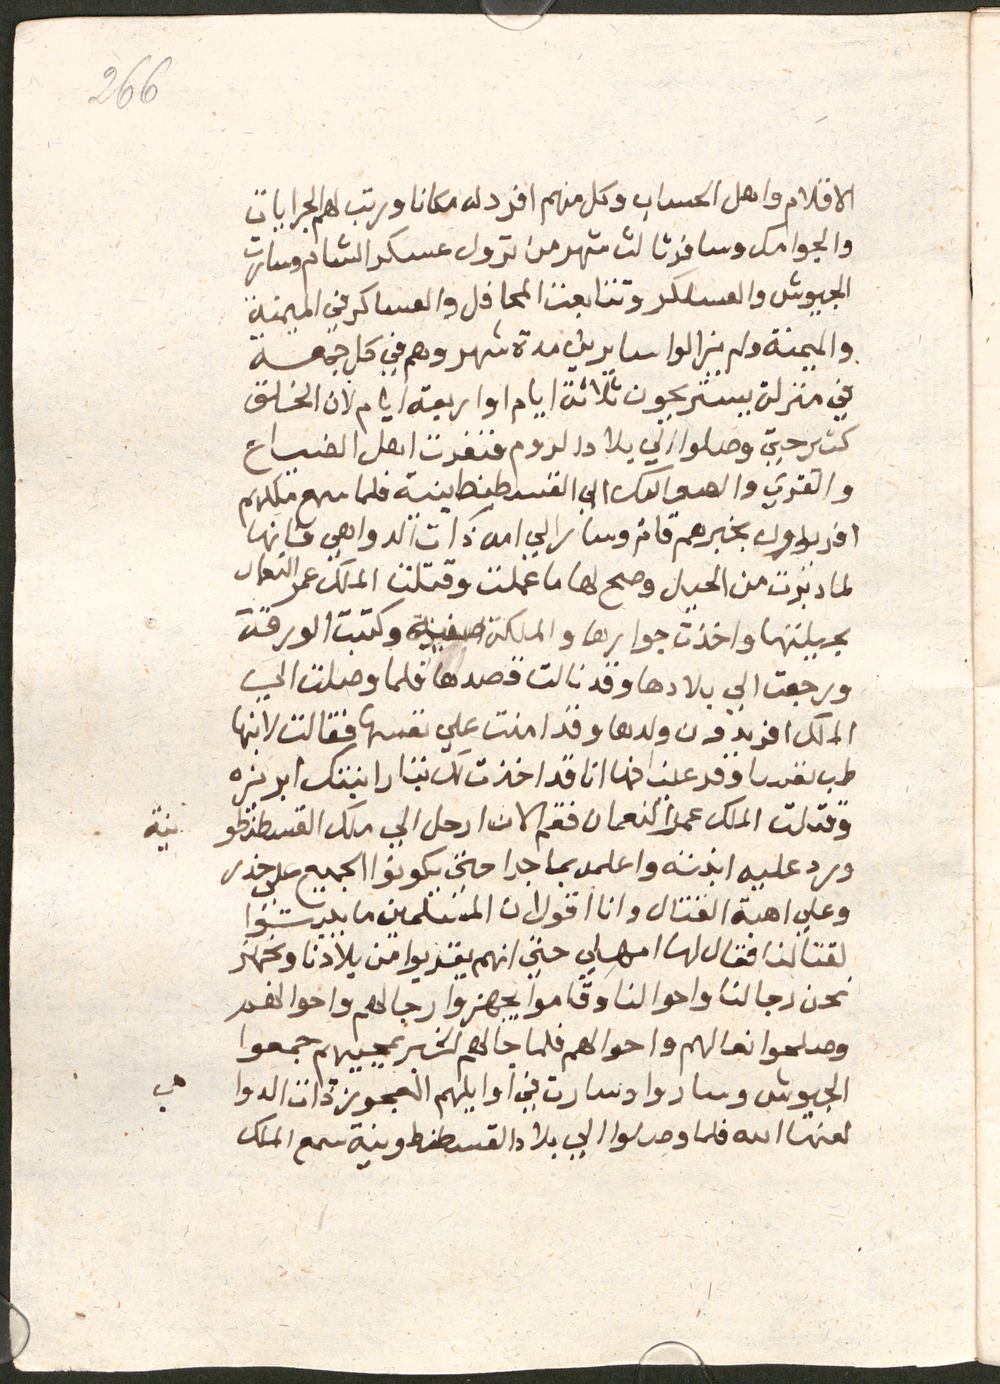 266
الاقلام واهل الحساب وكل منهم افرد له مكانا ورتب لهم الجرايات
والجوامك وسافر ثالث شهر من نزول عسكر الشام وسارت
الجيوش والعساكر وتتابعت المحافل والعساكر في الميمنة
والميمنة ولم يزالوا سايرين مدة شهر وهم في كل جمعة
في منزلة يستريحون ثلاثة ايام او اربعة ايام لان الخلق
كتير حتي وصلوا الي بلاد الروم فنفرت اهل الضياع
والقري والصعاليك الي القسطنطينية فلما سمع ملكهم
افريدون بخبرهم قام وسار الي امه ذات الدواهي فانها
لما دبرت من الحيل وصح لها ما عملت وقتلت الملك عمر النعمان
بحيلتها واخذت جوارها والملكة صفية وكتبت الورقة
ورجعت الي بلادها وقد نالت قصدها فلما وصلت الي
الملك افريدون ولدها وقد امنت علي نفسها فقالت لابنها
طب نفسا وقر عينا فها انا قد اخذت لك بثار ابنتك ابريزه
وقتلت الملك عمر النعمان فقم الان ارحل الي ملك القسطنطو نية
ورد عليه ابنته واعلمه بما جرا حتي يكونوا الجميع علي حذر
وعلي اهبة القتال وانا اقول ان المسلمين ما يلبثوا
لقتالنا فقال لها امهلي حتي انهم يقربوا من بلادنا ونجهز
نحن رجالنا واحوالنا وقاموا يجهزوا رجالهم واحوالهم
وصلحوا نعالهم واحوالهم فلما جالهم الخبر بمجيهم جمعوا
الجيوش وساروا وسارت في اوايلهم العجوز ذات الدوا هي
لعنها الله فلما وصلوا الي بلاد القسطنطونية سمع الملك